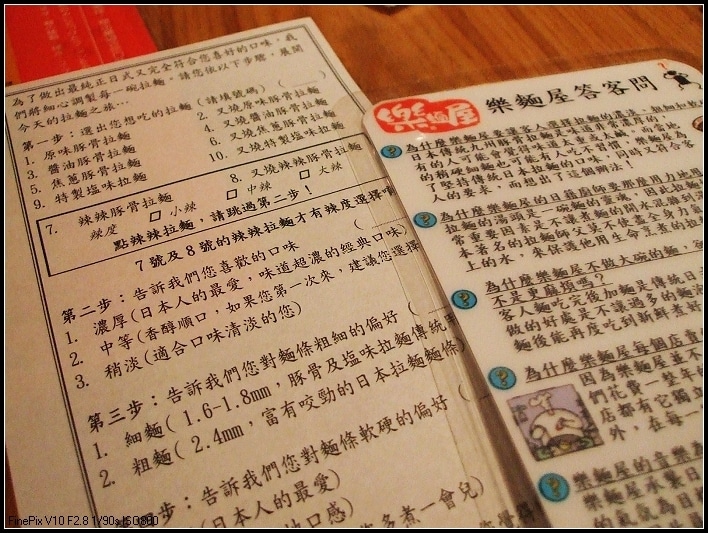 為了做出最純正日式又完全符合您喜好的口味，我
們將細心調製每一碗拉麵。請您依以下步驟，展開
今天的拉麵之旅…
第一步：選出您想吃的拉麵 (請填號碼) (
1. 原味豚骨拉麵 2. 叉燒原味豚骨拉麵
3. 醬油豚骨拉麵 4. 叉燒醬油豚骨拉麵
5. 焦蔥豚骨拉麵 6. 叉燒焦蔥豚骨拉麵
9. 特製塩味拉麵 10. 叉燒特製塩味拉麵
7. 辣辣豚骨拉麵 8. 叉燒辣辣豚骨拉麵
辣度 □ 小辣 □ 中辣 □ 大辣
點辣辣拉麵，請跳過第二步！
7 號及 8 號的辣辣拉麵才有辣度選擇
第二步：告訴我們您喜歡的口味 (
1. 濃厚(日本人的最愛，味道超濃的經典口味)
2. 中等(香醇順口，如果您第一次來，建議您選擇
3. 稍淡(適合口味清淡的您)
第三步：告訴我們您對麵條粗細的偏好 (
1. 細麵( 1.6-1.8mm，豚骨及塩味拉麵傳統用
2. 粗麵( 2.4mm，富有咬勁的日本拉麵麵條)
步：告訴我們您對麵條軟硬的偏好 (
(日本人的最愛)
多煮一會兒)
樂麵屋
樂麵屋答客問
為什麼樂麵屋要讓客人選擇拉麵的
日本傳統九用豚骨拉麵
有的人可能會覺得味道太重或太鹹，而當地
的稍硬細麵也可能有人吃不習慣，樂麵屋為
了堅持傳統日本拉麵的口味，同時又符合客
人的要求，而想出了這個辦法！
為什麼樂麵屋的日籍廚師要那麼用力地甩
拉麵的湯頭是一碗麵的靈魂，因此拉麵
常重要因素是不讓煮麵的開水混到湯
本著名的拉麵師父莫不使盡全身力氣
上的水，來保護他用生命熬煮的拉
為什麼樂麵屋不做大碗的麵，
不是更麻煩嗎？
客人麵吃完後加麵是傳統日
做的好處是不讓過多的麵
麵後能再度吃到新鮮煮好
為什麼樂麵屋每個店
因為樂麵屋並不
們花費一整年
店都有它獨立
外，在每一
樂麵屋的音樂為
樂麵屋承襲日
的氣氛為目
FinePix V10 F2.8 1/90s ISO800